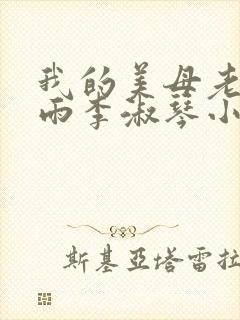 我的美母老
雨李淑琴小
斯基亞塔雷拉